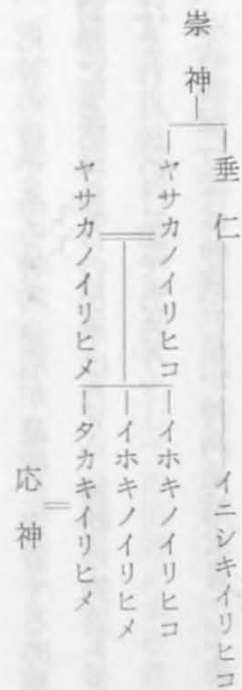 崇神
垂仁
イニシキイリヒコ
ヤサカノイリヒコ
イホキノイリヒコ
イホキノイリヒメ
ヤサカノイリヒメ
タカキイリヒメ
応神